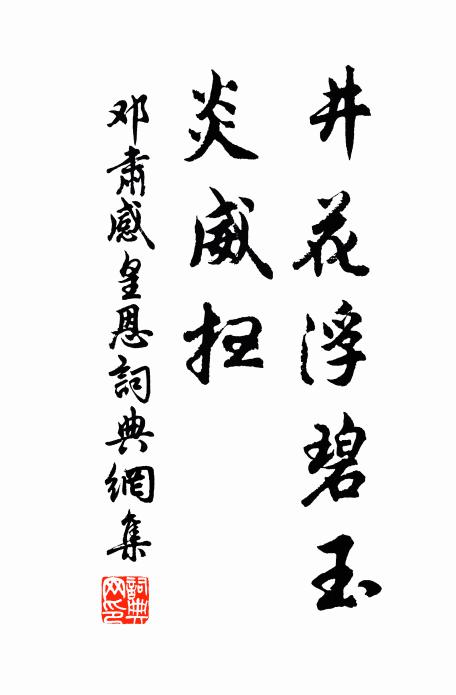 井花浮碧玉
炎威扫
邓肃感皇恩詞典網集
詞典
网印